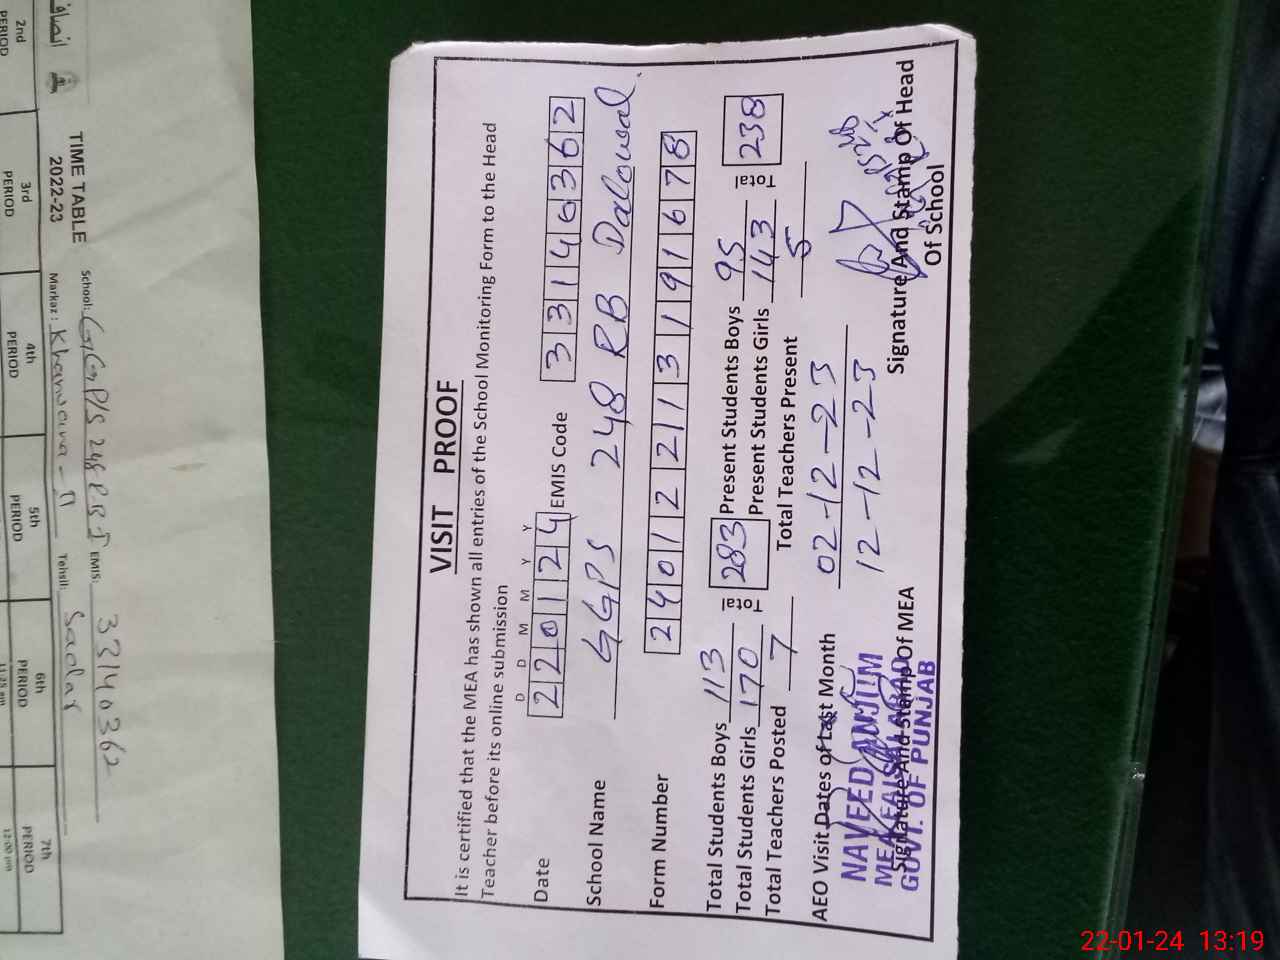 VISIT PROOF
It is certified that the MEA has shown all entries of the School Monitoring Form to the Head
Teacher before its online submission
D D M M Y Y
Date 220124 EMIS Code 33140362
School Name GGPS 248 RB Dalowal.
Form Number 240122113191678
Total Students Boys 113 Total 283 Present Students Boys 95 Total 238
Total Students Girls 170 Present Students Girls 143
Total Teachers Posted 7 Total Teachers Present 5
AEO Visit Dates of Last Month 02-12-23
12-12-23
NAVEED ANJUM
MEA FAISALABAD
GOVT. OF PUNJAB
Signature And Stamp Of MEA
Signature And Stamp Of Head
Of School
انصاف
TIME TABLE
2022-23
School: GGP/S 248 R.B I EMIS: 33140362
Markaz: Khanuana-II Tehsil: Sadar
2nd
PERIOD
3rd
PERIOD
4th
PERIOD
5th
PERIOD
6th
PERIOD
7th
PERIOD
12:00 pm
22-01-24 13:19